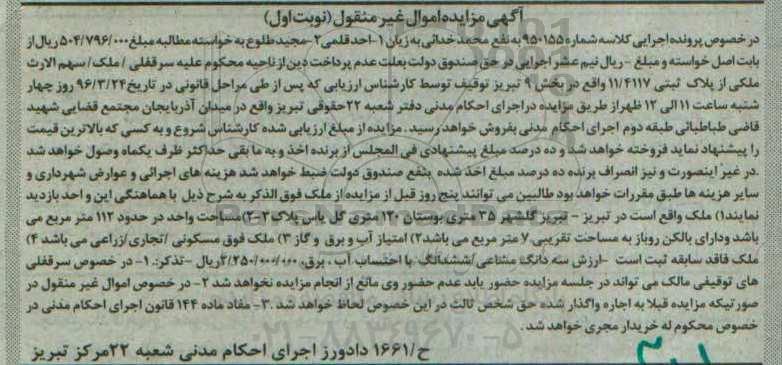 آگهی مزایده اموال غیر منقول (نوبت اول)
در خصوص پرونده اجرایی کلاسه شماره ۹۵۰۱۵۵ به نفع محمد خدائی به زیان ۱-احد قلمی ۲-مجید طلوع به خواسته مطالبه مبلغ ۵۰۴/۷۹۶/۰۰۰ ریال از
بابت اصل خواسته و مبلغ - ریال نیم عشر اجرایی در حق صندوق دولت بعلت عدم پرداخت دین از ناحیه محکوم علیه سرقفلی / ملک / سهم الارث
ملکی از پلاک ثبتی ۱۱/۴۱۱۷ واقع در بخش ۹ تبریز توقیف توسط کارشناس ارزیابی که پس از طی مراحل قانونی در تاریخ ۹۶/۳/۲۴ روز چهار
شنبه ساعت ۱۱ الی ۱۲ ظهر از طریق مزایده در اجرای احکام مدنی دفتر شعبه ۲۲ حقوقی تبریز واقع در میدان آذربایجان مجتمع قضایی شهید
قاضی طباطبائی طبقه دوم اجرای احکام مدنی بفروش خواهد رسید. مزایده از مبلغ ارزیابی شده کارشناس شروع و به کسی که بالاترین قیمت
را پیشنهاد نماید فروخته خواهد شد و ده درصد مبلغ پیشنهادی فی المجلس از برنده اخذ و به ما بقی حداکثر ظرف یکماه وصول خواهد شد
.در غیر اینصورت و نیز انصراف برنده ده درصد مبلغ اخذ شده بنفع صندوق دولت ضبط خواهد شد هزینه های اجرائی و عوارض شهرداری و
سایر هزینه ها طبق مقررات خواهد بود طالبین می توانند پنج روز قبل از مزایده از ملک فوق الذکر به شرح ذیل با هماهنگی این واحد بازدید
نمایند۱) ملک واقع است در تبریز - تبریز گلشهر ۳۵ متری بوستان ۱۲۰ متری گل یاس پلاک ۲-۲) مساحت واحد در حدود ۱۱۲ متر مربع می
باشد و دارای بالکن روباز به مساحت تقریبی ۷ متر مربع می باشد ۲) امتیاز آب و برق و گاز ۳) ملک فوق مسکونی /تجاری/زراعی می باشد ۴)
ملک فاقد سابقه ثبت است -ارزش سه دانگ مشاعی/ششدانگ با احتساب آب ، برق، ۲/۲۵۰/۰۰۰/۰۰۰ریال -تذکر:. ۱- در خصوص سرقفلی
های توقیفی مالک می تواند در جلسه مزایده حضور یابد عدم حضور وی مانع از انجام مزایده نخواهد شد ۲- در خصوص اموال غیر منقول در
صورتیکه مزایده قبلا به اجاره واگذار شده حق شخص ثالث در این خصوص لحاظ خواهد شد .۳- مفاد ماده ۱۴۴ قانون اجرای احکام مدنی در
خصوص محکوم له خریدار مجری خواهد شد .
ح/۱۶۶۱ دادورز اجرای احکام مدنی شعبه ۲۲مرکز تبریز